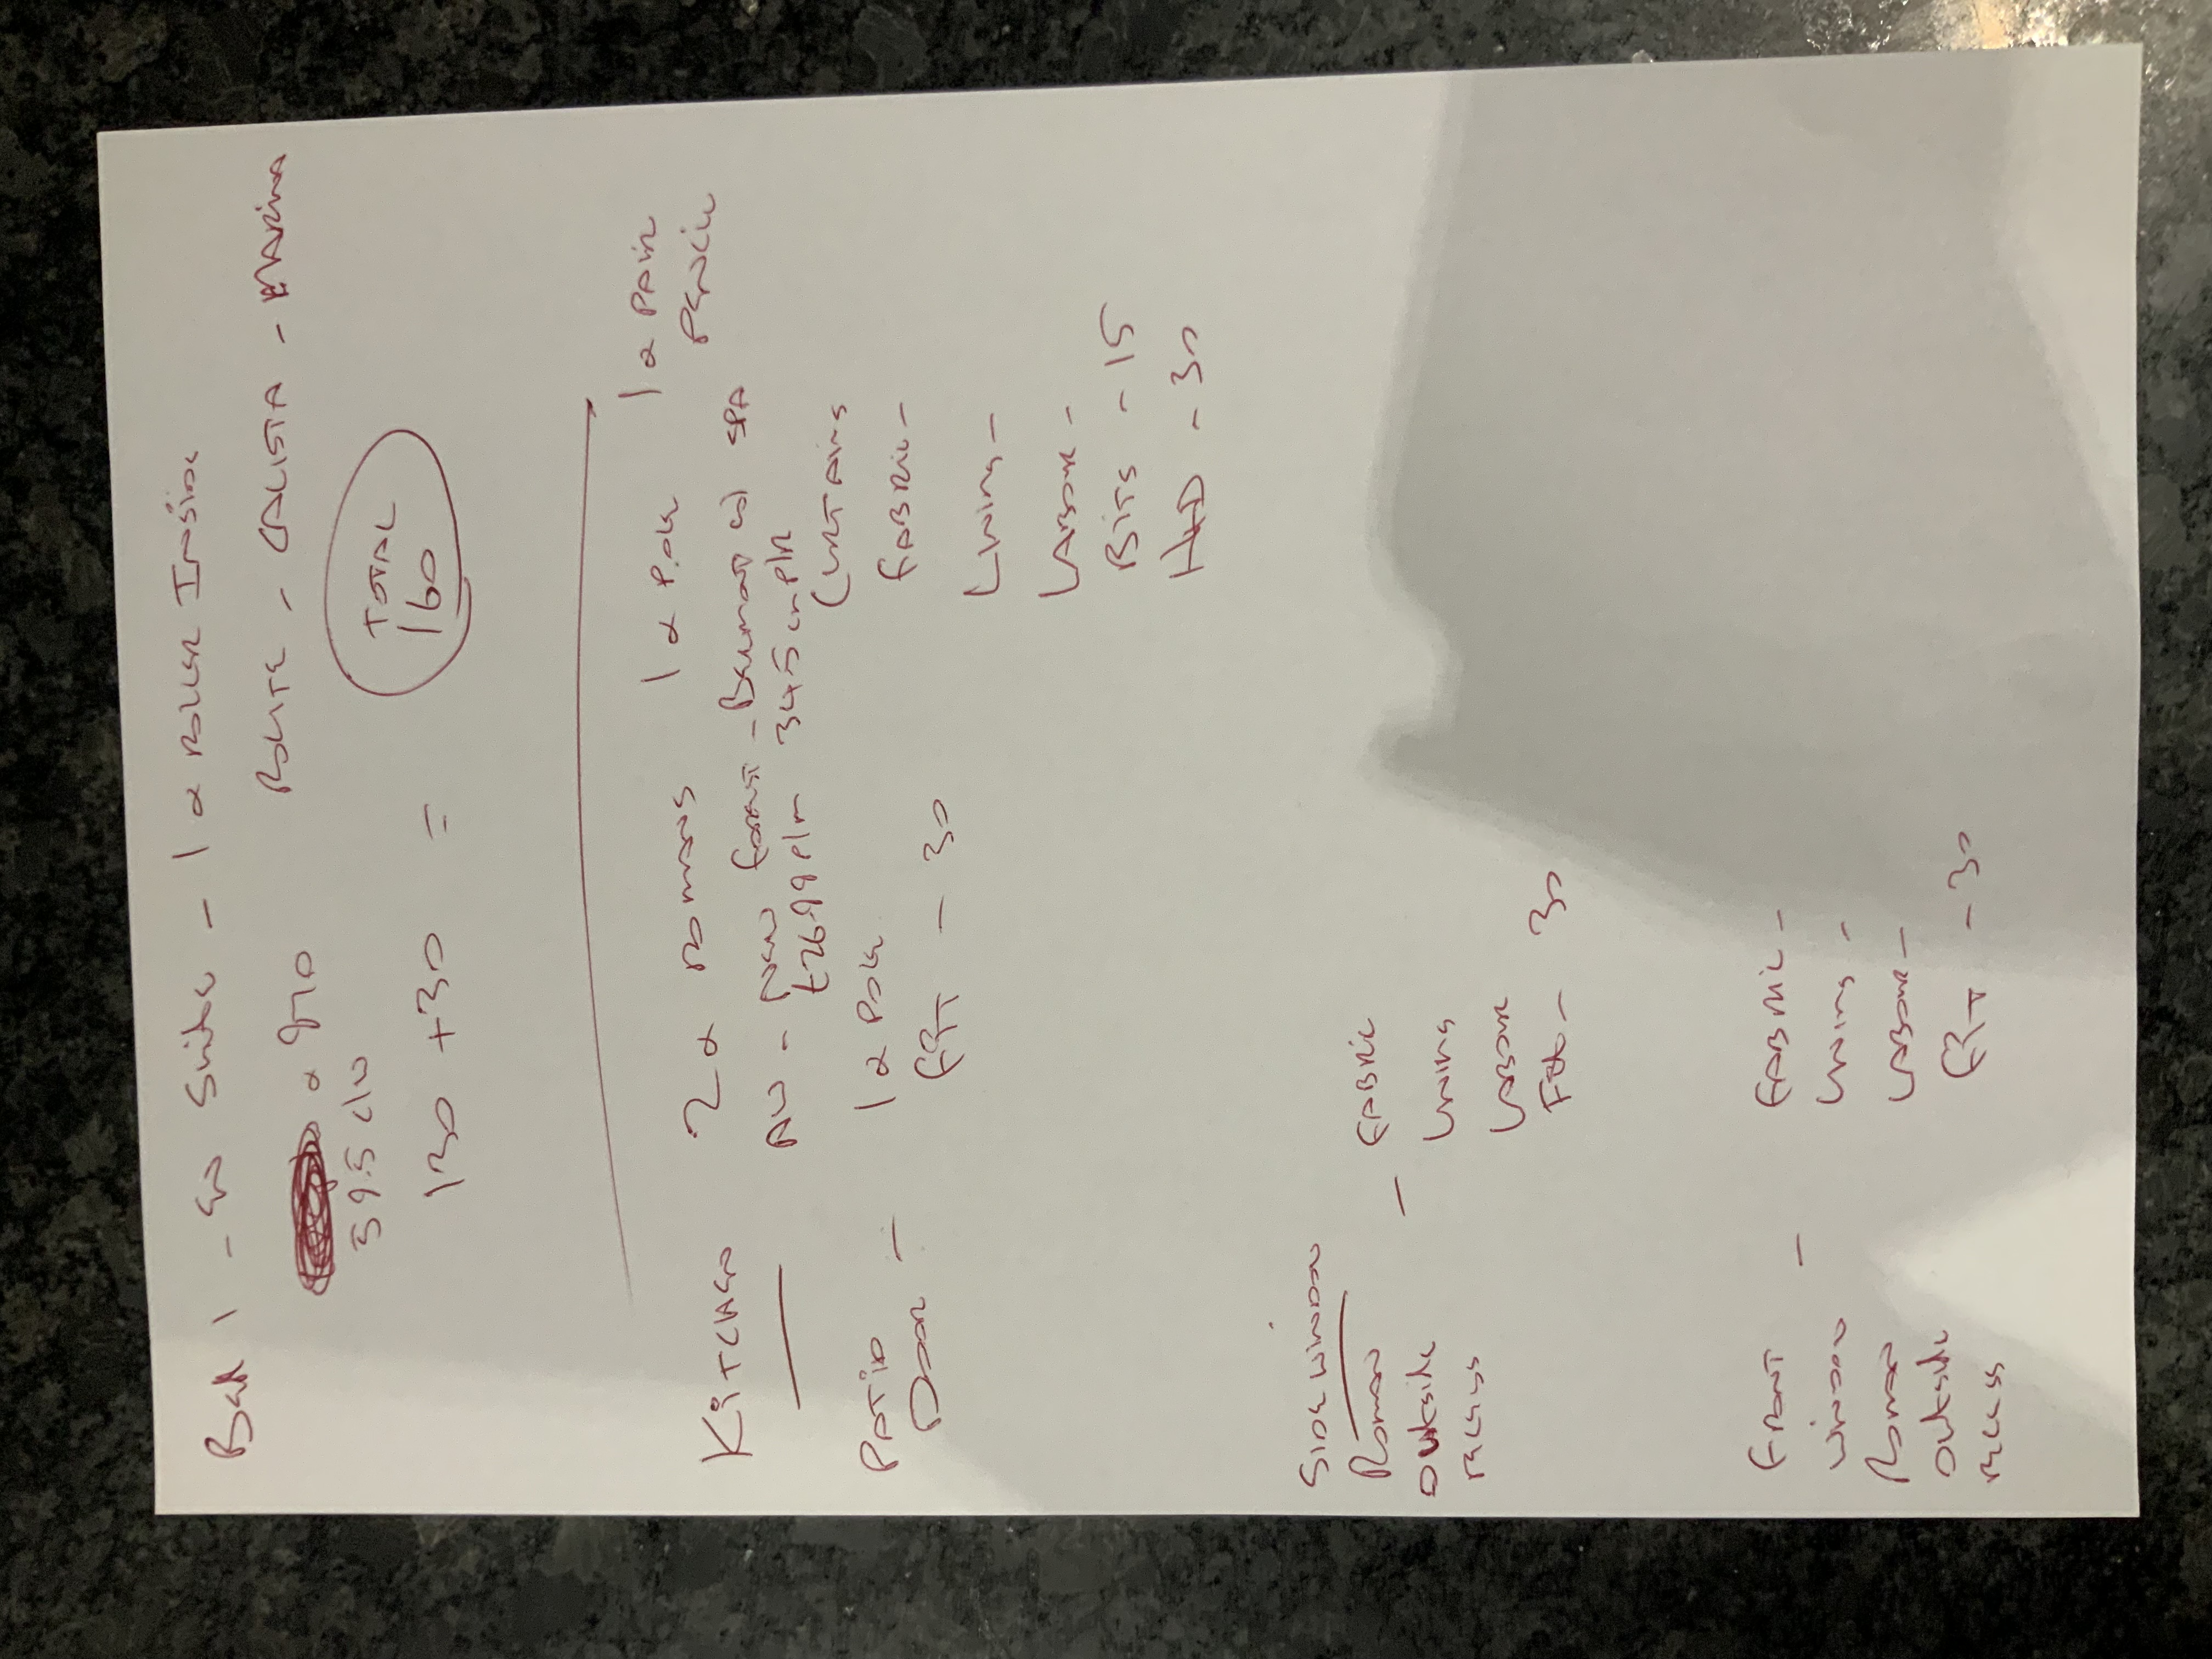 Bed 1 - En Suite - 1 x Roller Inside
Bolite - CALISTA - MARINA
x 970
595 c/w
130 + 30 =
TOTAL
160
KITCHEN 2 x ROMANS 1 x Pole 1 x PAIR
PENCIL
All - New Forest - Beaumont col SPA
£26.99 p/m 34.5 cm p/r
PATIO
DOOR -
1 x Pole
FIT - 30
CURTAINS
FABRIC -
Lining -
LABOUR -
BITS - 15
H+D - 30
SIDE WINDOW
ROMAN
outside
recess
- FABRIC
Lining
LABOUR
Fit - 30
FRONT
WINDOW
ROMAN
outside
recess
- FABRIC -
Lining -
LABOUR -
FIT - 30